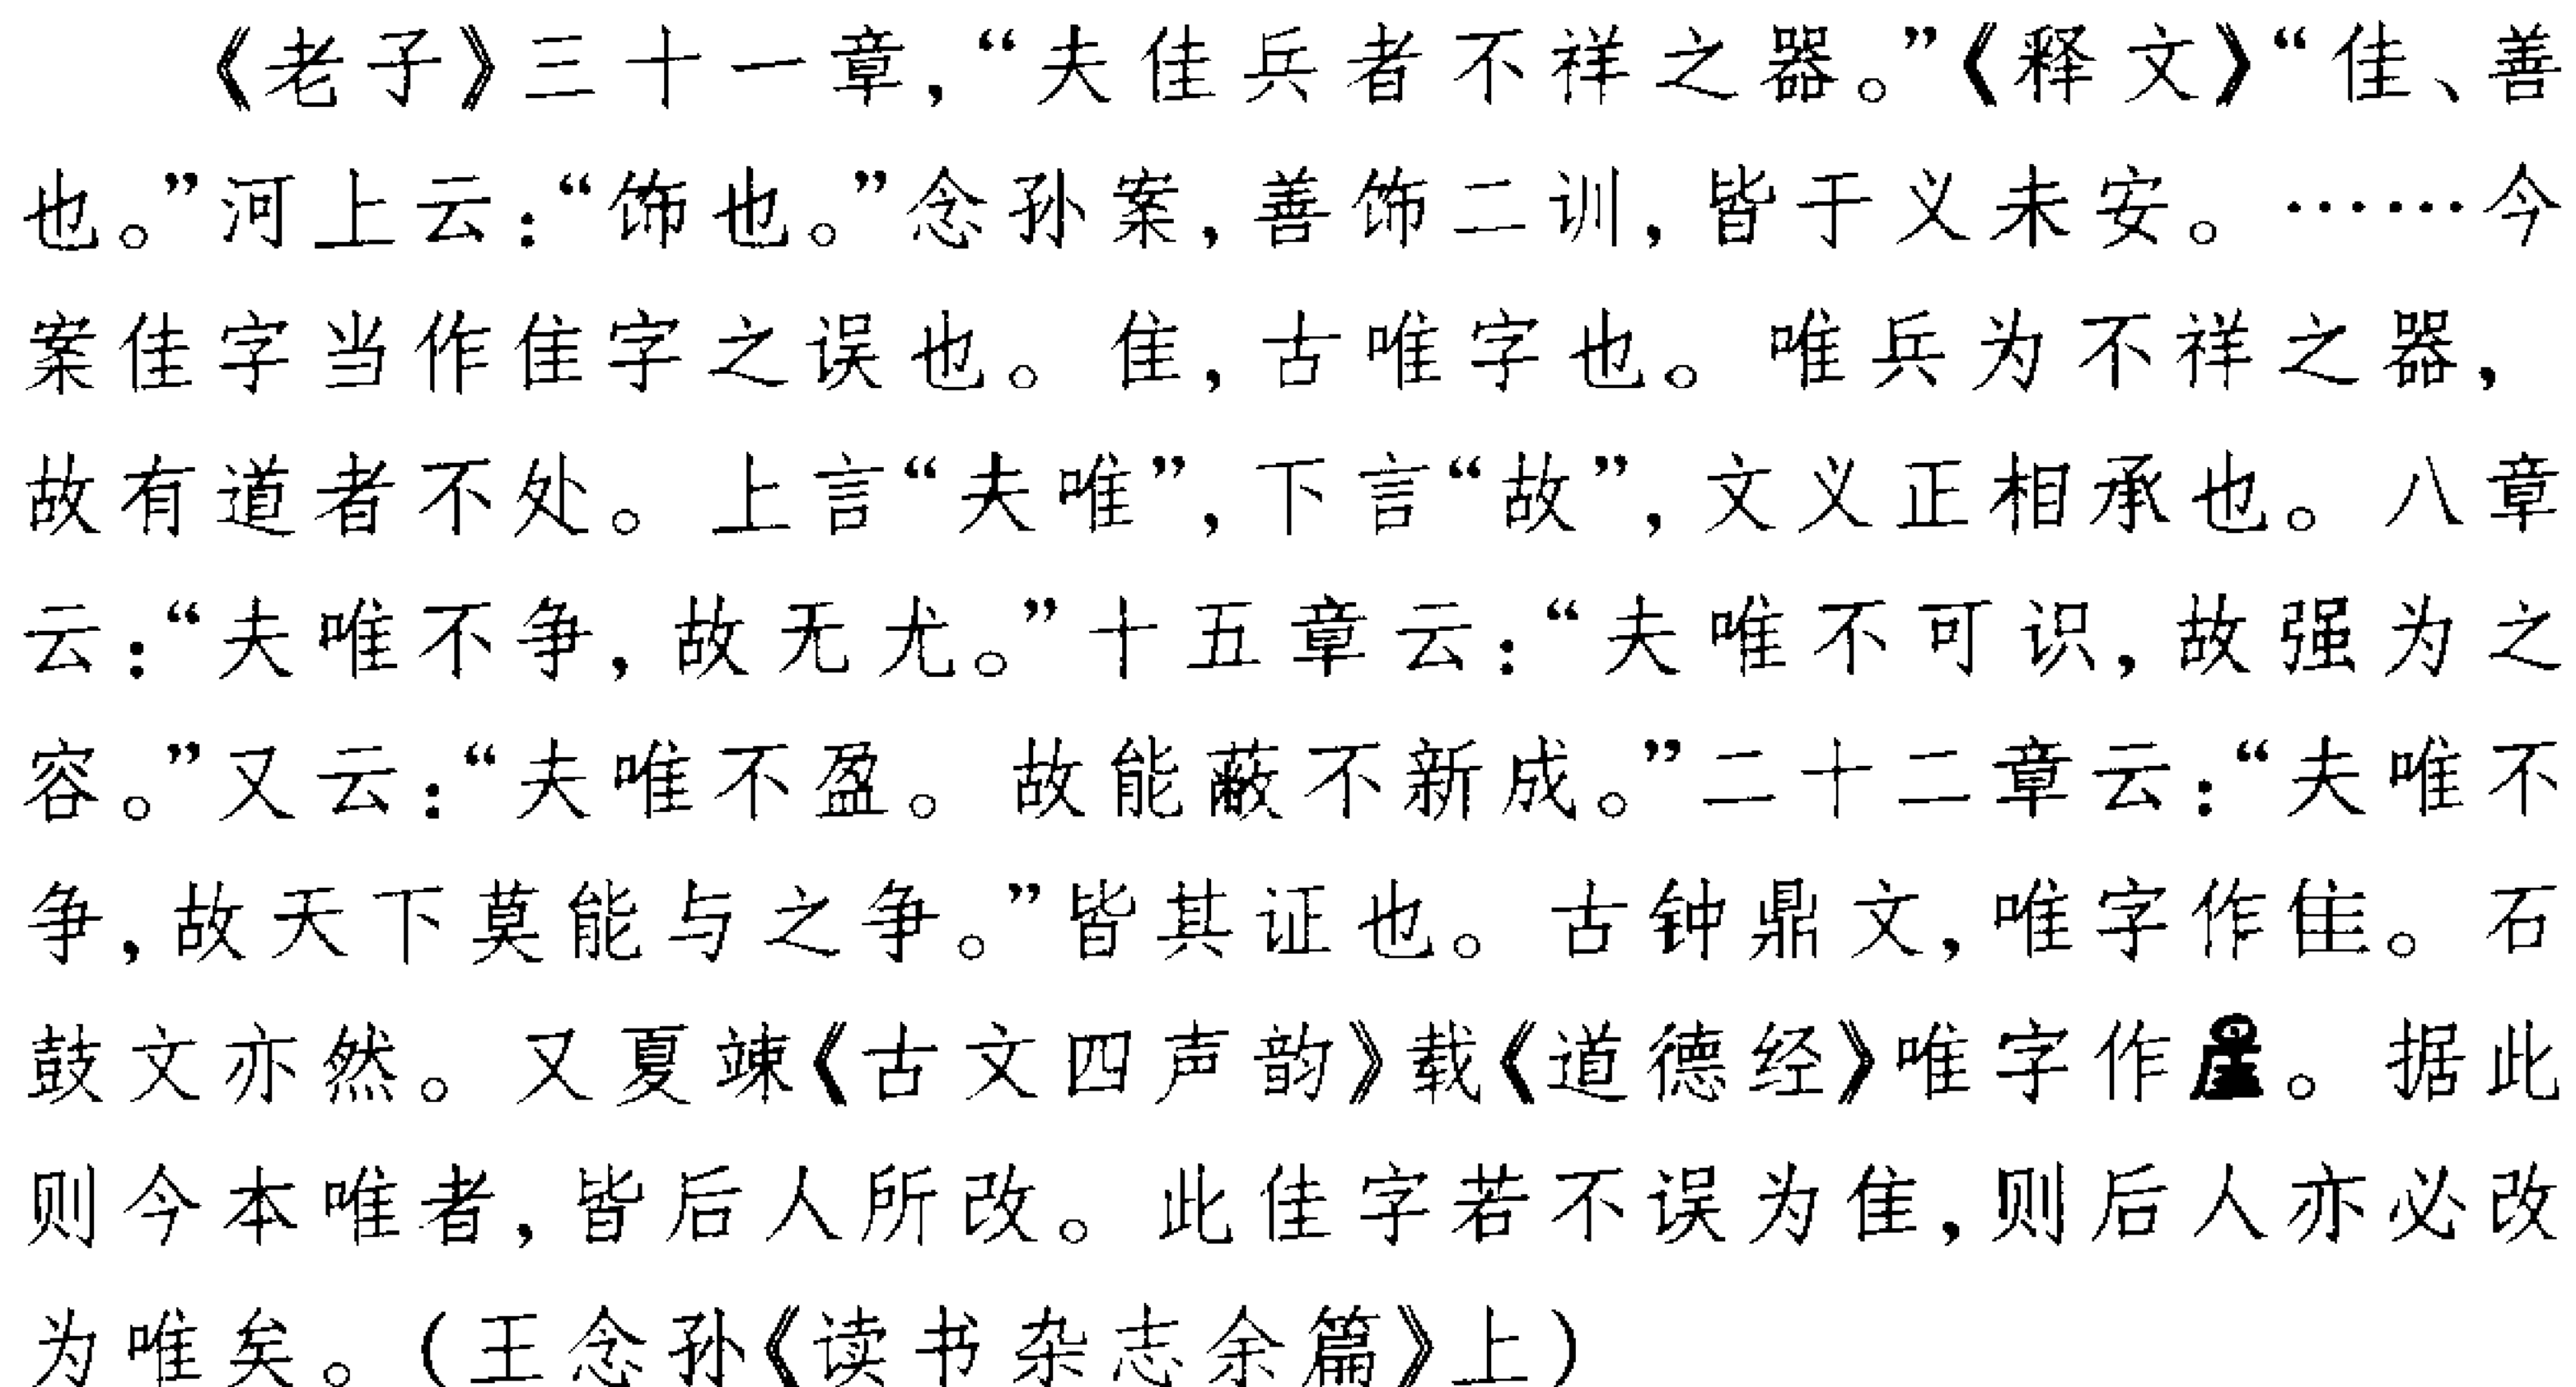 《老子》三十一章，“夫佳兵者不祥之器。”《释文》“佳、善
也。”河上云：“饰也。”念孙案，善饰二训，皆于义未安。……今
案佳字当作隹字之误也。隹，古唯字也。唯兵为不祥之器，
故有道者不处。上言“夫唯”，下言“故”，文义正相承也。八章
云：“夫唯不争，故无尤。”十五章云：“夫唯不可识，故强为之
容。”又云：“夫唯不盈。故能蔽不新成。”二十二章云：“夫唯不
争，故天下莫能与之争。”皆其证也。古钟鼎文，唯字作隹。石
鼓文亦然。又夏竦《古文四声韵》载《道德经》唯字作。据此
则今本唯者，皆后人所改。此佳字若不误为隹，则后人亦必改
为唯矣。（王念孙《读书杂志余篇》上）